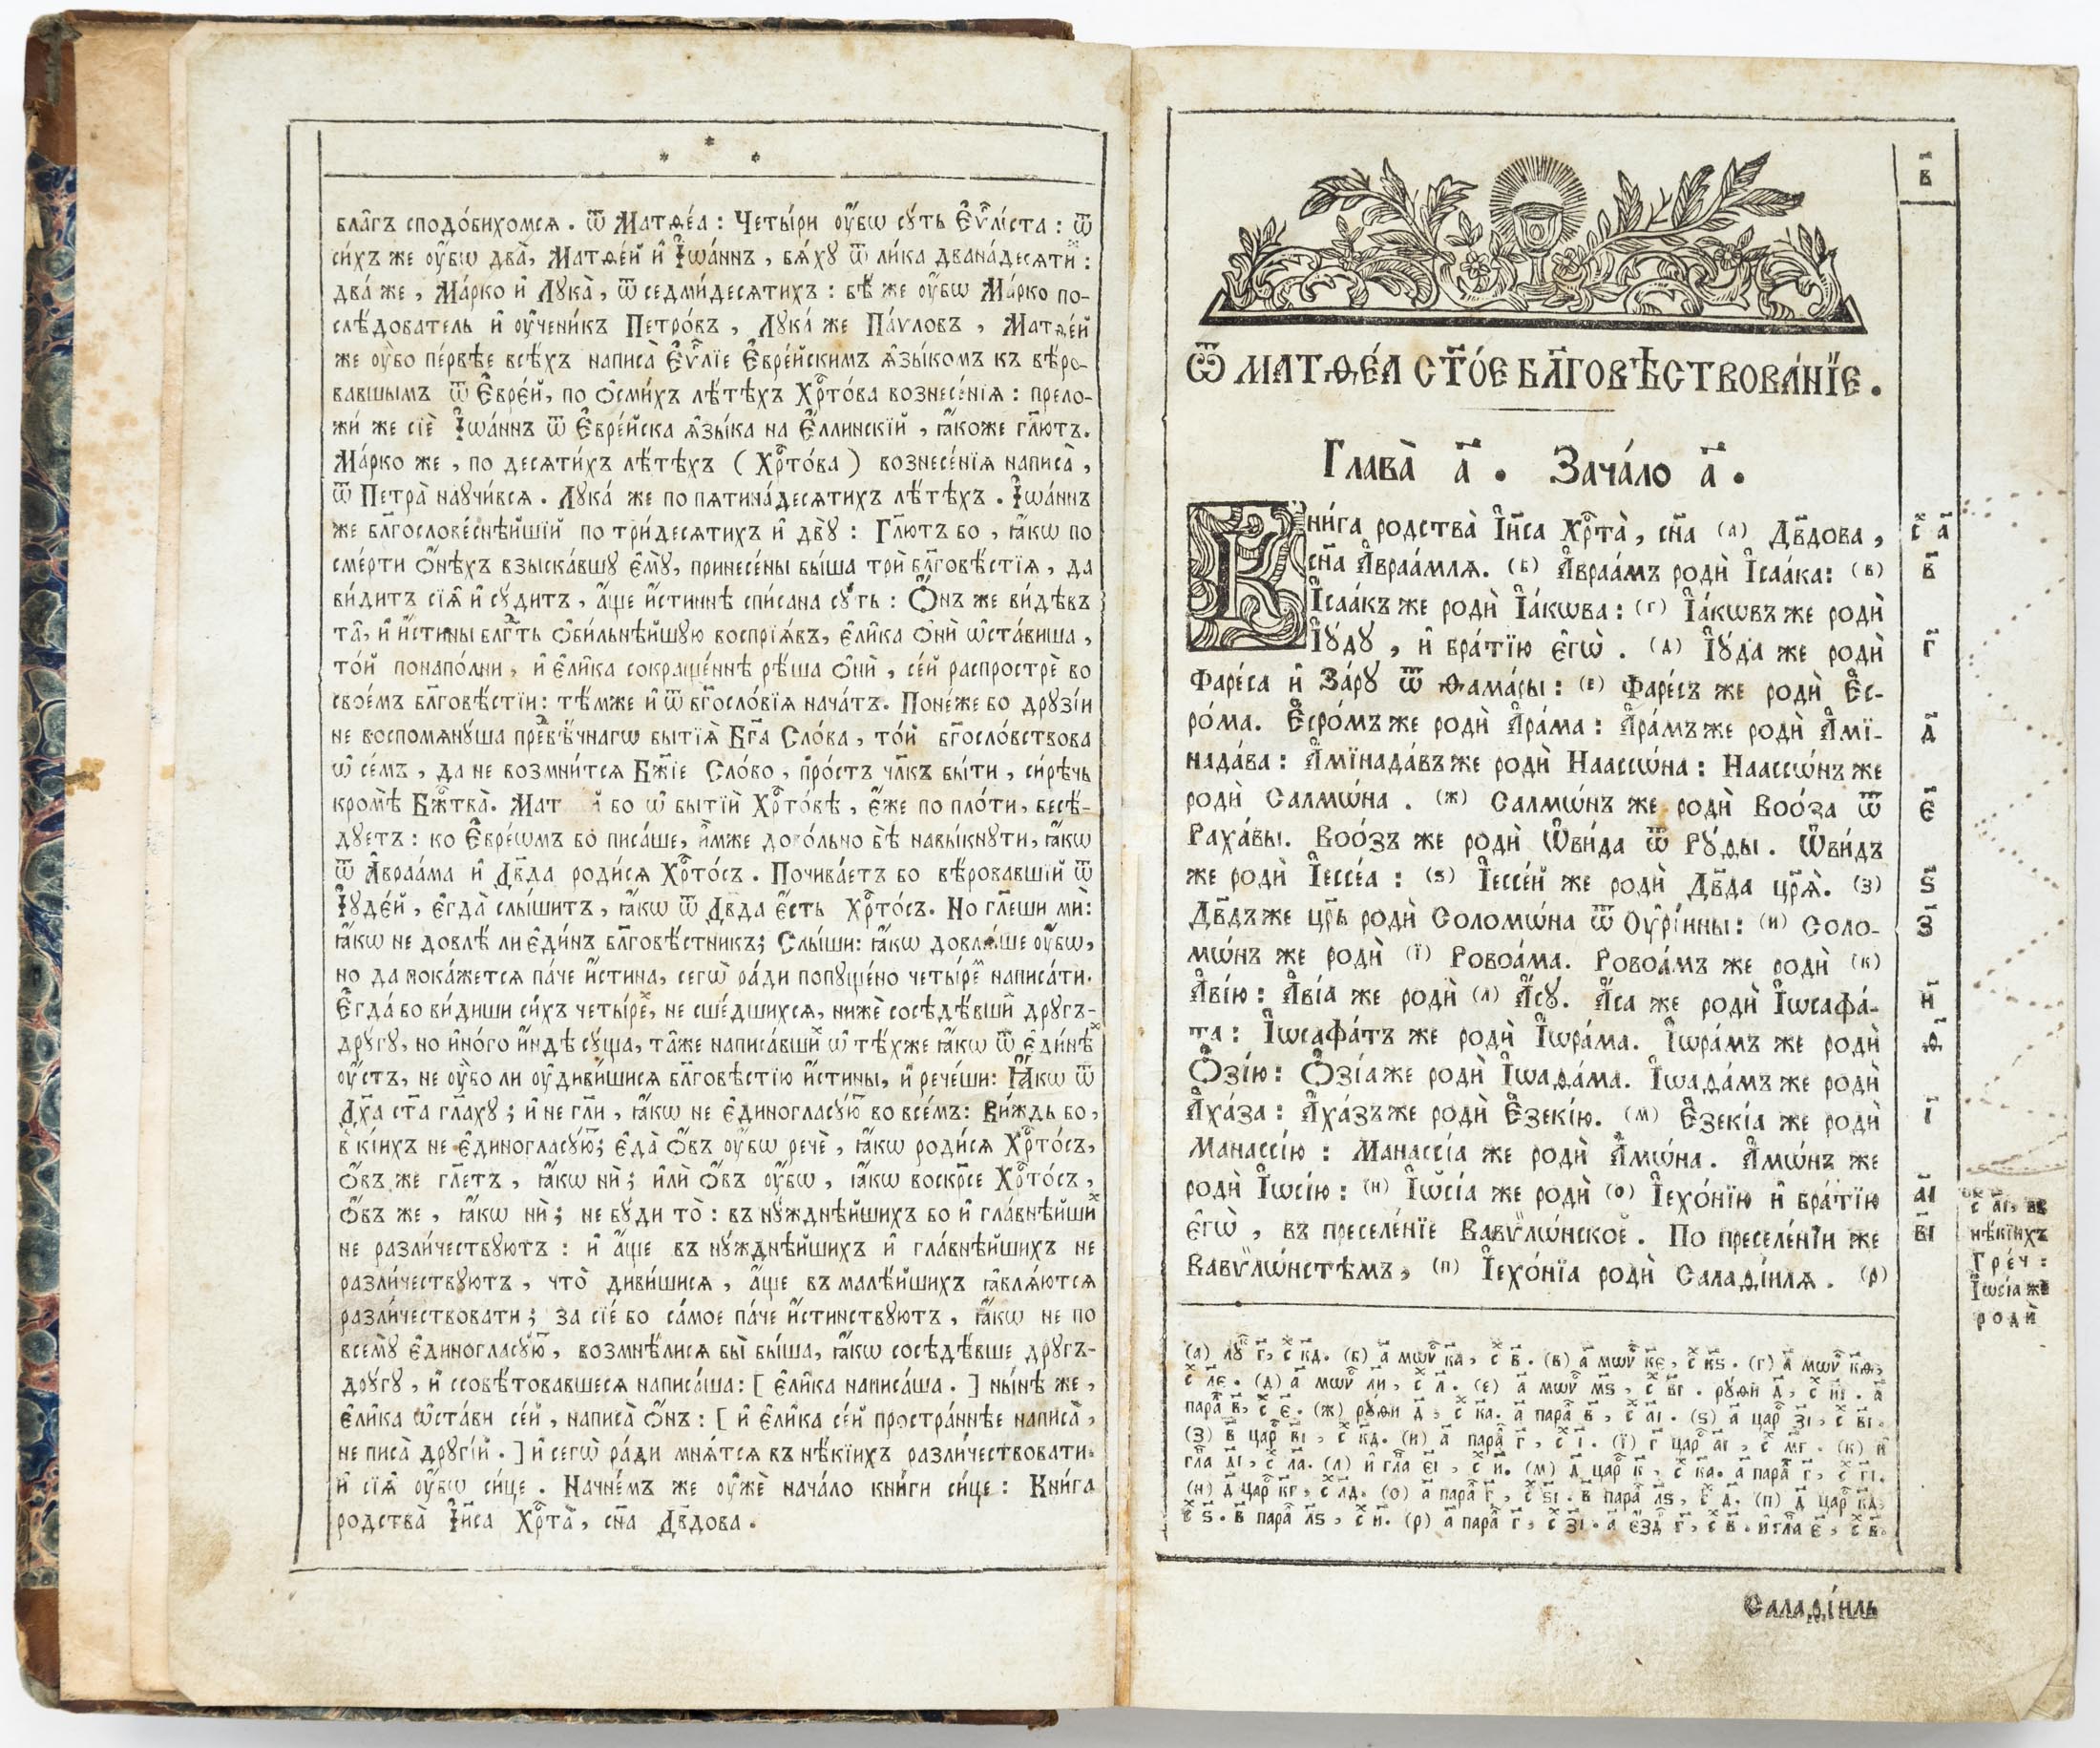 * * *
бл҃гъ сподо́бихомсѧ . Ѿ Матѳе́а : Четы́ри ᲂу҆́бѡ сꙋ́ть Е҆ѵⷢ҇лі́ста : ѿ
си́хъ же ᲂу҆́бѡ два̀, Матѳе́й и҆ І҆ѡа́ннъ , бѧ́хꙋ ѿ ли́ка двана́десѧти :
два́ же , Ма́рко и҆ Лꙋка̀ , ѿ седми́десѧтихъ : бѣ́ же ᲂу҆́бѡ Ма́рко по-
слѣ́дователь и҆ ᲂу҆чени́къ Петро́въ , Лꙋка́ же Па́ѵловъ , Матѳе́й
же ᲂу҆̀бо пе́рвѣе всѣ́хъ написа̀ Е҆ѵⷢ҇лїе Е҆вре́йскимъ ꙗ҆зы́комъ къ вѣ́ро-
вавшымъ ѿ Е҆вре́й , по ѻ҆сми́хъ лѣ́тѣхъ Хрⷭ҇то́ва вознесе́нїѧ : прело-
жи́ же сїѐ І҆ѡа́ннъ ѿ Е҆вре́йска ꙗ҆зы́ка на Е҆́ллинскїй , ꙗ҆́коже гл҃ютъ .
Ма́рко же , по десѧти́хъ лѣ́тѣхъ ( Хрⷭ҇то́ва ) вознесе́нїѧ написа̀ ,
ѿ Петра̀ наꙋчи́всѧ . Лꙋка́ же по пѧтина́десѧтихъ лѣ́тѣхъ . І҆ѡа́ннъ
же бл҃гослове́снѣйшїй по три́десѧтихъ и҆ двꙋ̀ : Гл҃ютъ бо , ꙗ҆́кѡ по
сме́рти ѻ҆́нѣхъ взыска́вшꙋ є҆мꙋ̀, принесе́ны бы́ша трѝ бл҃говѣ́стїѧ , да
ви́дитъ сїѧ̑ и҆ сꙋ́дитъ , а҆́ще и҆́стиннѣ спи́сана сꙋ́ть : Ѻ҆́нъ же ви́дѣвъ
та̑, и҆ и҆́стины бл҃гⷣть ѻ҆би́льнѣйшꙋю воспрїѧ́въ, є҆ли̑ка ѻ҆нѝ ѡ҆ста́виша ,
то́й понапо́лни , и҆ є҆ли̑ка сокраще́ннѣ рѣ́ша ѻ҆нѝ , се́й распрострѐ во
свое́мъ бл҃говѣ́стїи : тѣ́мже и҆ ѿ бг҃осло́вїѧ нача́тъ . Поне́же бо дрꙋзі́и
не воспомѧнꙋ́ша превѣ́чнагѡ бытїѧ̀ Бг҃а Сло́ва , то́й бг҃осло́вствова
ѡ҆ се́мъ , да не возмни́тсѧ Бж҃їе Сло́во , про́стъ чл҃къ бы́ти , си́рѣчь
кромѣ̀ Бж҃тва̀ . Мат й бо ѡ҆ бытїѝ Хрⷭ҇то́вѣ , є҆́же по пло́ти , бесѣ́-
дꙋетъ : ко Е҆вре́ѡмъ бо писа́ше, и҆̀мже дово́льно бѣ̀ навы́кнꙋти, ꙗ҆́кѡ
ѿ А҆враа́ма и҆ Дв҃да роди́сѧ Хрⷭ҇то́съ . Почива́етъ бо вѣ́ровавшїй ѿ
І҆ꙋде́й , є҆гда̀ слы́шитъ , ꙗ҆́кѡ ѿ Дв҃да є҆́сть Хрⷭ҇то́съ . Но гл҃еши ми :
ꙗ҆́кѡ не довлѣ́ ли є҆ди́нъ бл҃говѣ́стникъ ; Слы́ши : ꙗ҆́кѡ довлѧ́ше ᲂу҆́бѡ ,
но да пока́жетсѧ па́че и҆́стина , сегѡ̀ ра́ди попꙋще́но четы́ремъ написа́ти .
Е҆гда́ бо ви́диши си́хъ четы́рехъ , не сше́дшихсѧ , нижѐ сосѣдѣ́вшихъ дрꙋ́гъ-
дрꙋ́гꙋ , но и҆но́го и҆́ндѣ сꙋ́ща , та̑же написа́вшихъ ѡ҆ тѣ́хже ꙗ҆́кѡ ѿ є҆ди́нѣхъ
ᲂу҆́стъ , не ᲂу҆̀бо ли ᲂу҆диви́шисѧ бл҃говѣ́стїю и҆́стины , и҆ рече́ши : Ꙗ҆́кѡ ѿ
Дх҃а ст҃а гл҃ахꙋ ; и҆ не гл҃и , ꙗ҆́кѡ не є҆диногласꙋ́ютъ во все́мъ : Ви́ждь бо ,
в̾ кі́ихъ не є҆диногласꙋ́ютъ ; є҆да̀ ѻ҆́въ ᲂу҆́бѡ речѐ , ꙗ҆́кѡ роди́сѧ Хрⷭ҇то́съ ,
ѻ҆́въ же гл҃етъ , ꙗ҆́кѡ нѝ ; и҆лѝ ѻ҆́въ ᲂу҆́бѡ , ꙗ҆́кѡ воскр҃се Хрⷭ҇то́съ ,
ѻ҆́въ же , ꙗ҆́кѡ нѝ ; не бꙋ́ди то̀ : въ нꙋ́жднѣйшихъ бо и҆ гла́внѣйшихъ
не разли́чествꙋютъ : и҆ а҆́ще въ нꙋ́жднѣйшихъ и҆ гла́внѣйшихъ не
разли́чествꙋютъ , что̀ диви́шисѧ , а҆́ще въ малѣ́йшихъ ꙗ҆влѧ́ютсѧ
разли́чествовати ; за сїе́ бо са́мое па́че и҆́стинствꙋютъ , ꙗ҆́кѡ не по
всемꙋ̀ є҆диногласꙋ́ютъ , возмнѣ́лисѧ бы̀ бы́ша, ꙗ҆́кѡ сосѣдѣ́вше дрꙋ́гъ-
дрꙋ́гꙋ , и҆ ссовѣ́товавшесѧ написа́ша : [ є҆ли̑ка написа́ша . ] ны́нѣ же ,
є҆ли̑ка ѡ҆ста́ви се́й , написа̀ ѻ҆́нъ : [ и҆ є҆ли̑ка се́й простра́ннѣе написа̀ ,
не писа̀ дрꙋгі́й . ] и҆ сегѡ̀ ра́ди мнѧ́тсѧ въ нѣ́кїихъ разли́чествовати .
и҆ сїѧ̑ ᲂу҆́бѡ си́це . Начне́мъ же ᲂу҆жѐ нача́ло кни́ги си́це : Кни́га
родства̀ І҆и҃са Хрⷭ҇та̀ , сн҃а Дв҃дова .
в҃
Ѿ МАТѲЕ́А СТ҃О́Е БЛ҃ГОВѢСТВОВА́НЇЕ .
Глава̀ а҃ . Зача́ло а҃ .
Кни́га родства̀ І҆и҃са Хрⷭ҇та̀ , сн҃а (а) Дв҃дова , с̾ а҃
сн҃а А҆враа́млѧ . (б) А҆враа́мъ родѝ І҆саа́ка : (в) в҃
І҆саа́къ же родѝ І҆а́кѡва : (г) І҆а́кѡвъ же родѝ
І҆ꙋ́дꙋ , и҆ бра́тїю є҆гѡ̀ . (д) І҆ꙋ́да же родѝ г҃
Фаре́са и҆ За́рꙋ ѿ Ѳама́ры : (е) Фаре́съ же родѝ Е҆с-
ро́ма . Е҆сро́мъ же родѝ А҆ра́ма : А҆ра́мъ же родѝ А҆мї- д҃
нада́ва : А҆мїнада́въ же родѝ Наассѡ́на : Наассѡ́нъ же
родѝ Салмѡ́на . (ж) Салмѡ́нъ же родѝ Воо́за ѿ є҃
Раха́вы . Воо́зъ же родѝ Ѡ҆ви́да ѿ Рꙋ́ѳы . Ѡ҆ви́дъ
же родѝ І҆ессе́а : (ѕ) І҆ессе́й же родѝ Дв҃да цр҃ѧ̀ . (з) ѕ҃
Дв҃дъ же цр҃ь родѝ Соломѡ́на ѿ Оу҆рі́ины : (и) Соло- з҃
мѡ́нъ же родѝ (ї) Ровоа́ма . Ровоа́мъ же родѝ (к)
А҆ві́ю : А҆ві́а же родѝ (л) А҆́сꙋ . А҆́са же родѝ І҆ѡсафа́- и҃
та : І҆ѡсафа́тъ же родѝ І҆ѡра́ма . І҆ѡра́мъ же родѝ ѳ҃
Ѻ҆зі́ю : Ѻ҆зі́а же родѝ І҆ѡаѳа́ма . І҆ѡаѳа́мъ же родѝ
А҆ха́за : А҆ха́зъ же родѝ Е҆зекі́ю . (м) Е҆зекі́а же родѝ і҃
Манассі́ю : Манассі́а же родѝ А҆мѡ́на . А҆мѡ́нъ же
родѝ І҆ѡсі́ю : (н) І҆ѡсі́а же родѝ (о) І҆ехо́нїю и҆ бра́тїю а҃і
є҆гѡ̀ , въ преселе́нїе Вавѷлѡ́нское . По преселе́нїи же в҃і
Вавѷлѡ́нстѣмъ , (п) І҆ехо́нїа родѝ Салаѳі́илѧ . (р)
с̾ а҃і, въ
нѣ́кїихъ
Гре́ч :
І҆ѡсі́а же
родѝ
(а) лꙋ г҃ , с̾ к҃д . (б) а҃ мѡѷ к҃а , с̾ в҃ . (в) а҃ мѡѷ к҃е , с̾ к҃ѕ . (г) а҃ мѡѷ к҃ѳ ,
с̾ л҃е . (д) а҃ мѡѷ л҃и , с̾ л҃ . (е) а҃ мѡѷ м҃ѕ , с̾ в҃і . рꙋ́ѳи д҃ , с̾ и҃і . а҃
пара в҃ , с̾ є҃ . (ж) рꙋ́ѳи д҃ , с̾ к҃а . а҃ пара в҃ , с̾ а҃і . (ѕ) а҃ цар з҃і , с̾ в҃і .
(з) в҃ цар в҃і , с̾ к҃д . (и) а҃ пара г҃ , с̾ і҃ . (ї) г҃ цар а҃і , с̾ м҃г . (к) и҆
гла д҃і , с̾ л҃а . (л) и҆ гла є҃і , с̾ и҃ . (м) д҃ цар к҃ , с̾ к҃а . а҃ пара г҃ , с̾ г҃і .
(н) д҃ цар к҃г , с̾ л҃д . (о) а҃ пара г҃ , с̾ ѕ҃і . в҃ пара л҃ѕ , с̾ д҃ . (п) д҃ цар к҃д ,
с̾ ѕ҃ . в҃ пара л҃ѕ , с̾ и҃ . (р) а҃ пара г҃ , с̾ з҃і . а҃ є҆зд г҃ , с̾ в҃ . и҆ гла є҃ , с̾ в҃ .
Салаѳі́иль